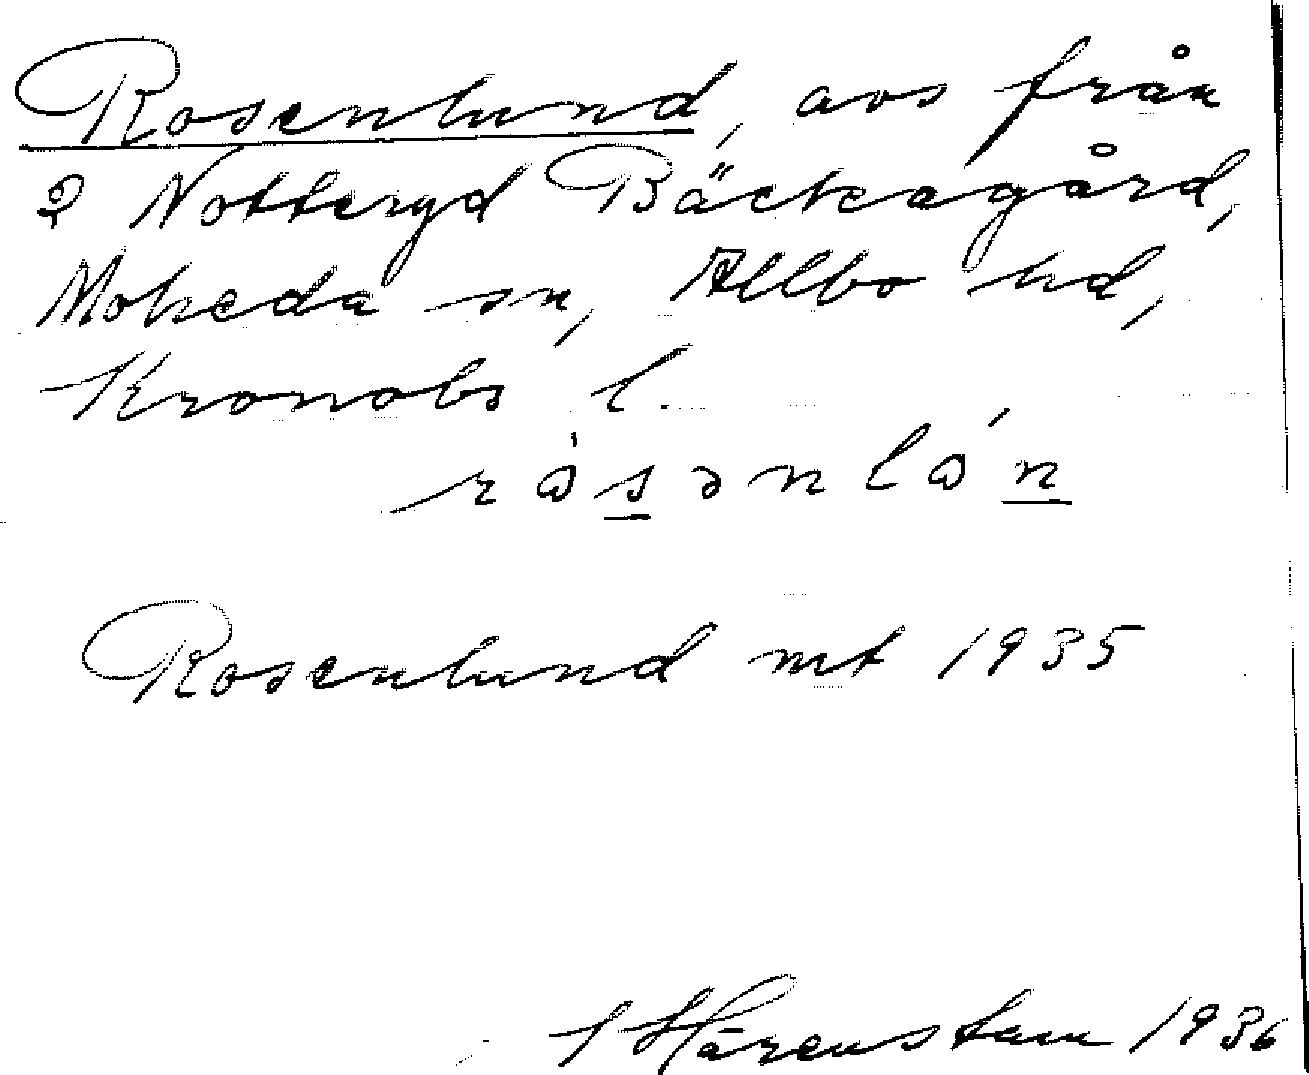 Rosenlund, avs från
2 Notteryd Bäckagård,
Moheda sn, Allbo hd,
Kronobs l.
Rosenlund mt 1935
S Härenstam 1936